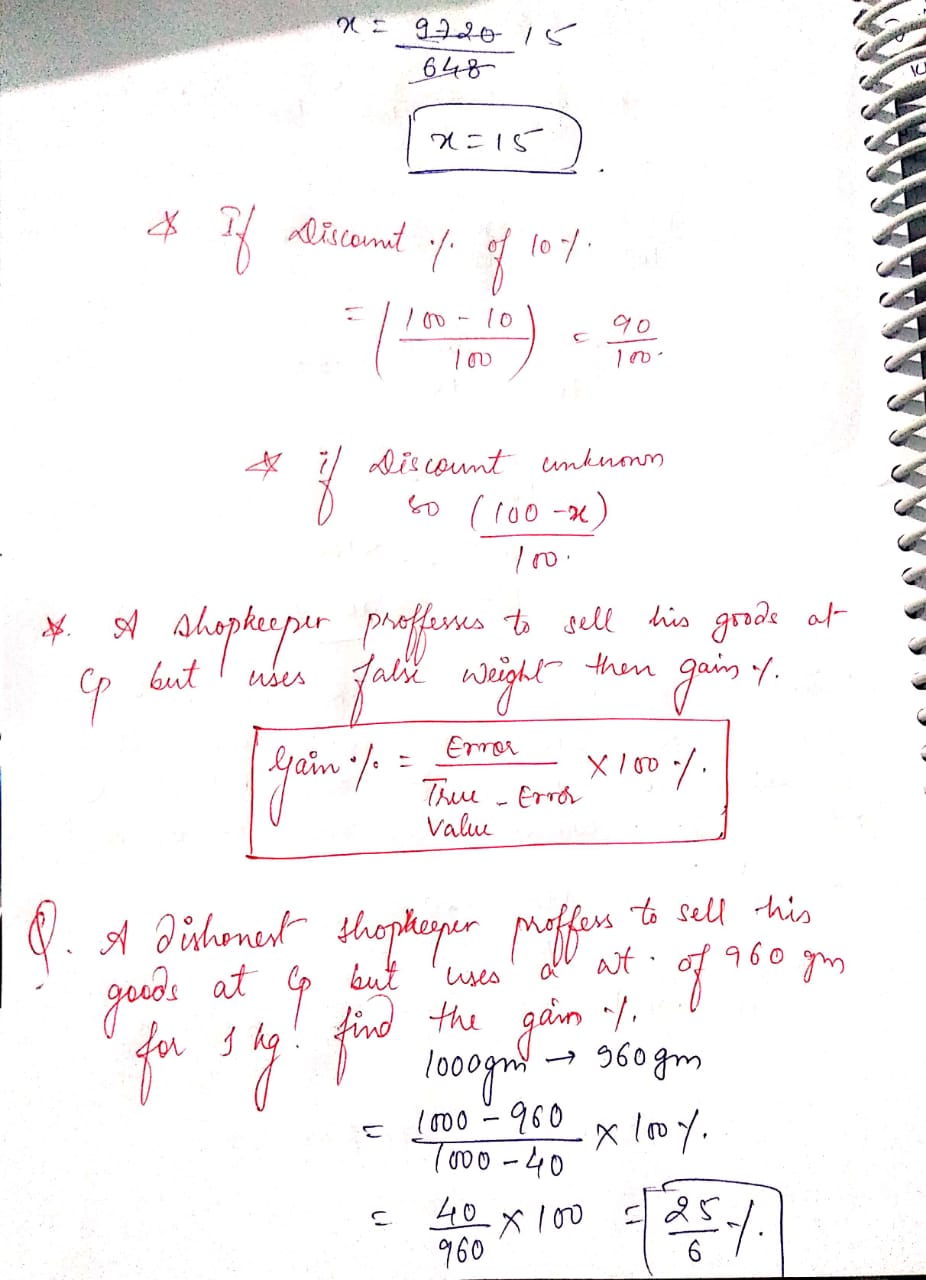 x = 9720 15
648
x = 15
* If Discount % of 10%.
= (100 - 10 / 100) = 90/100.
* if Discount unknown
so (100 - x)
100.
*. A shopkeeper proffesses to sell his goods at
Cp but uses false weight then gain %.
Gain % = Error / True Value - Error × 100 %.
Q. A Dishonest shopkeeper proffess to sell his
goods at Cp but uses a wt. of 960 gm
for 1 kg. find the gain %.
1000gm → 960gm
= 1000 - 960 / 1000 - 40 × 100 %.
= 40/960 × 100 = 25/6 %.